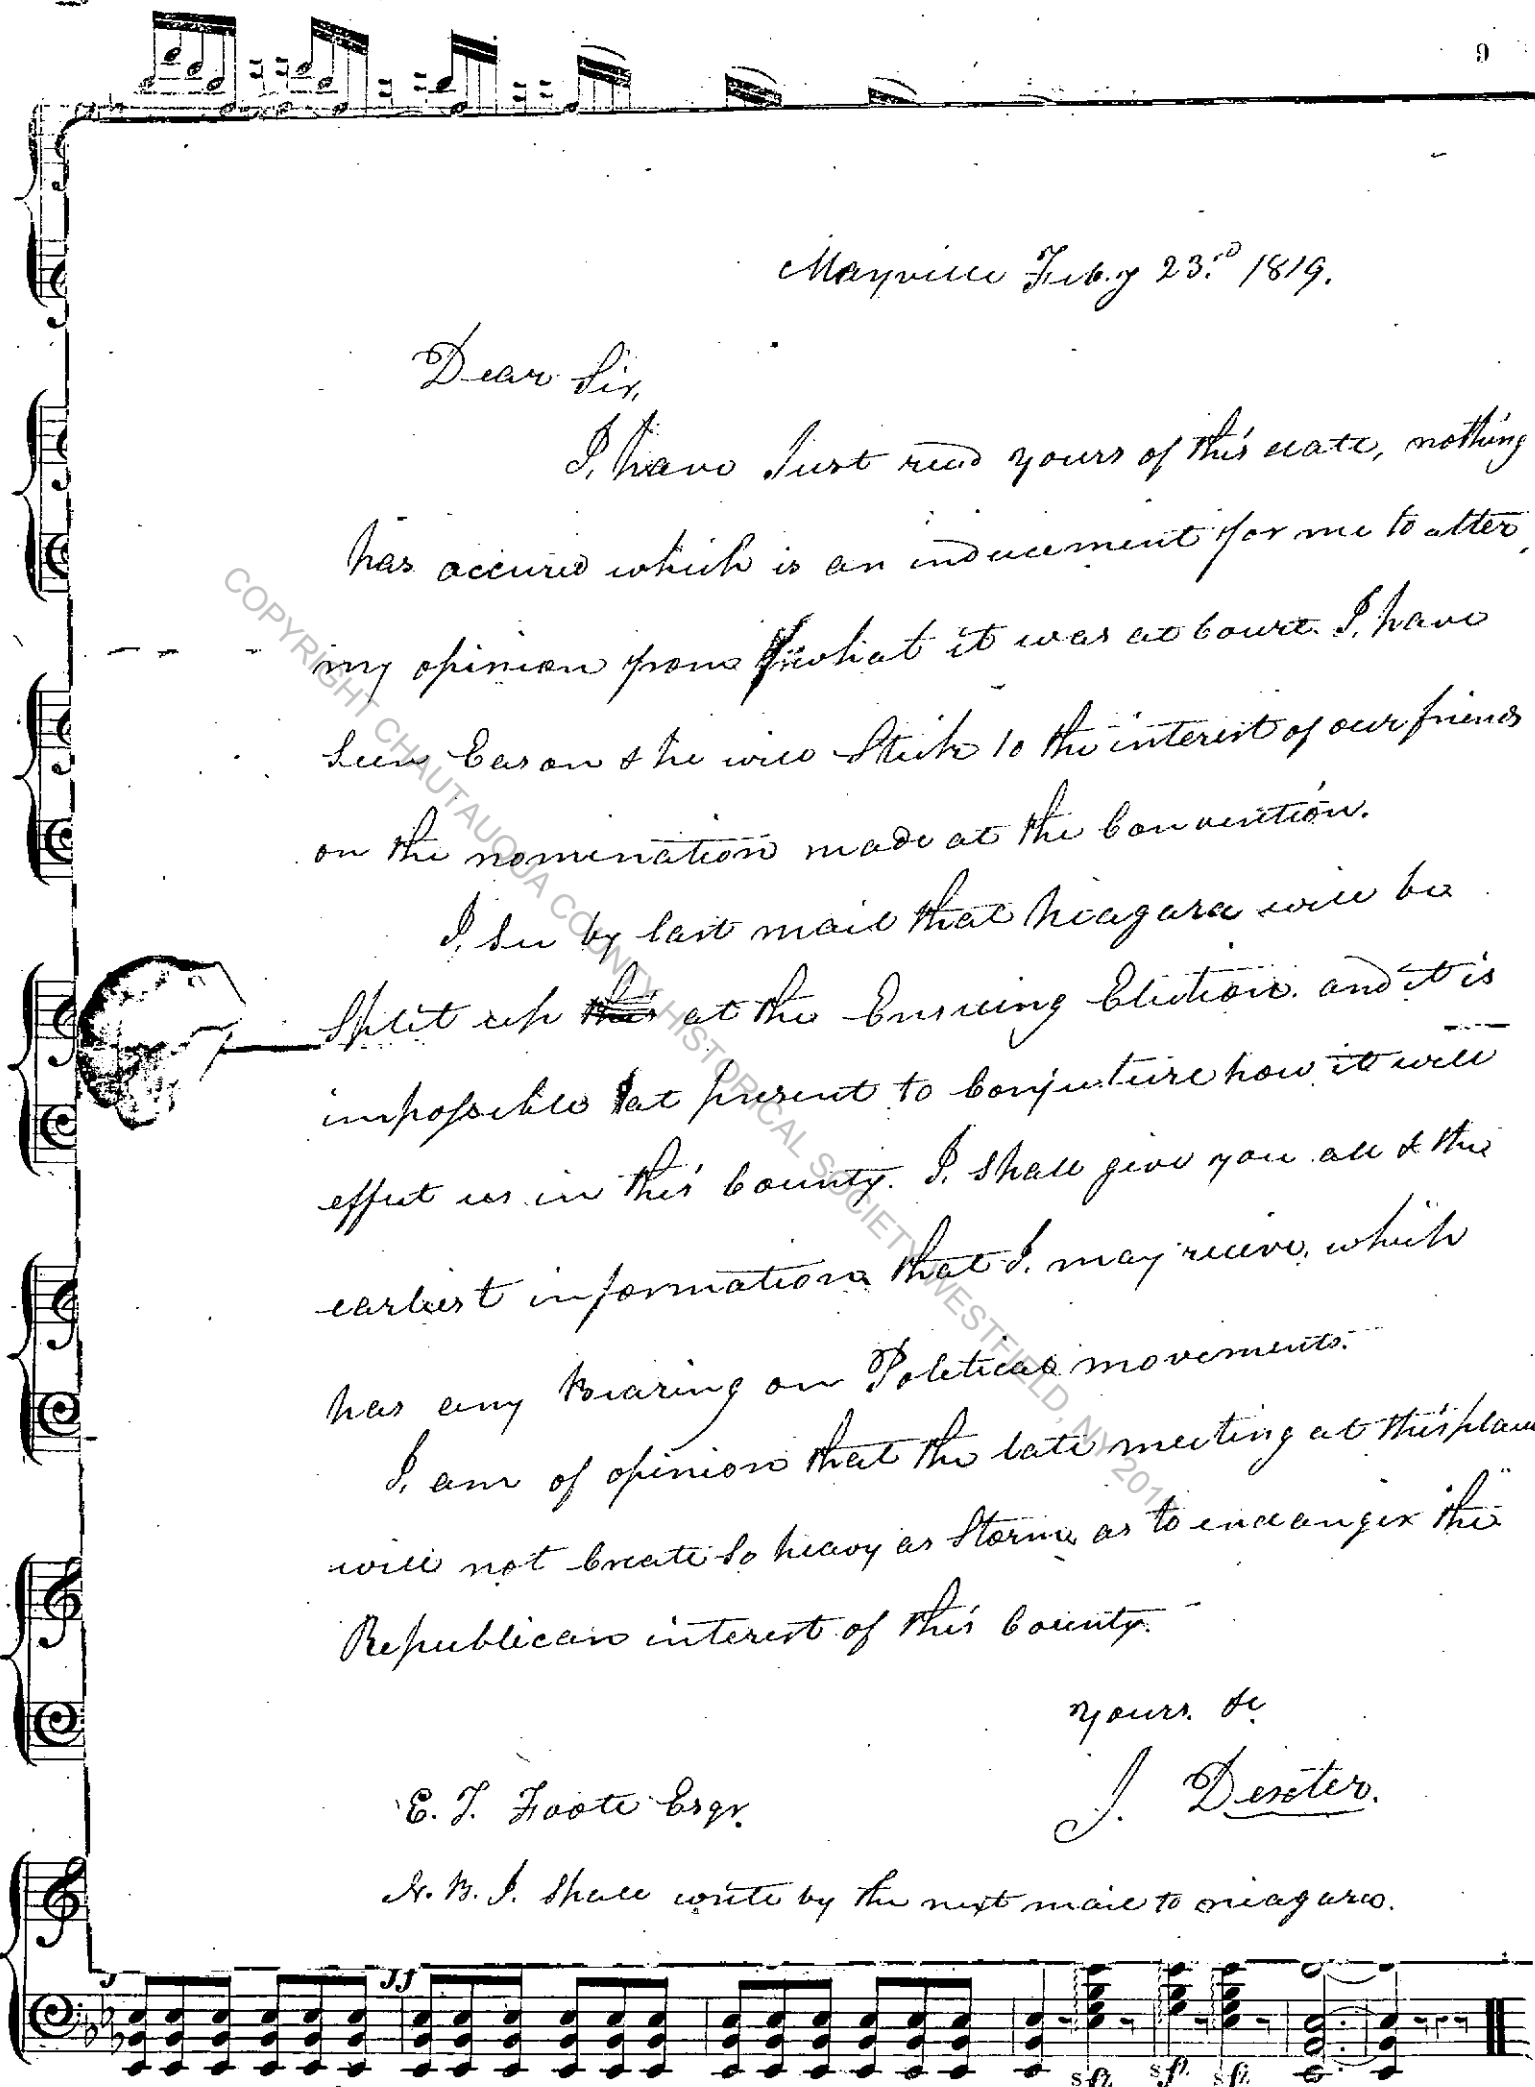 9
Mayville Feb.y 23.rd 1819.
Dear Sir,
I, have Just read yours of this date, nothing
has accured which is an inducement for me to alter
my opinion from what it was at Court. I, have
Seen Eason & he will Stick to the interest of our friends
on the nomination made at the Convention.
I, See by last mail that Niagara will be
Split up this at the Ensuing Election. and it is
impossible at present to Conjecture how it will
effect us in this County. I, shall give you all & the
earliest information that I. may recieve, which
has any Bearing on Political movements.
I, am of opinion that the late meeting at this place
will not Create So heavy as Storm as to endanger the
Republican interest of this County.
yours. &c
E. T. Foote Esqr.
J. Dexter.
N. B. I. Shall write by the next mail to niagara.
COPYRIGHT CHAUTAUQUA COUNTY HISTORICAL SOCIETY, WESTFIELD, NY
ff
sfz sfz sfz